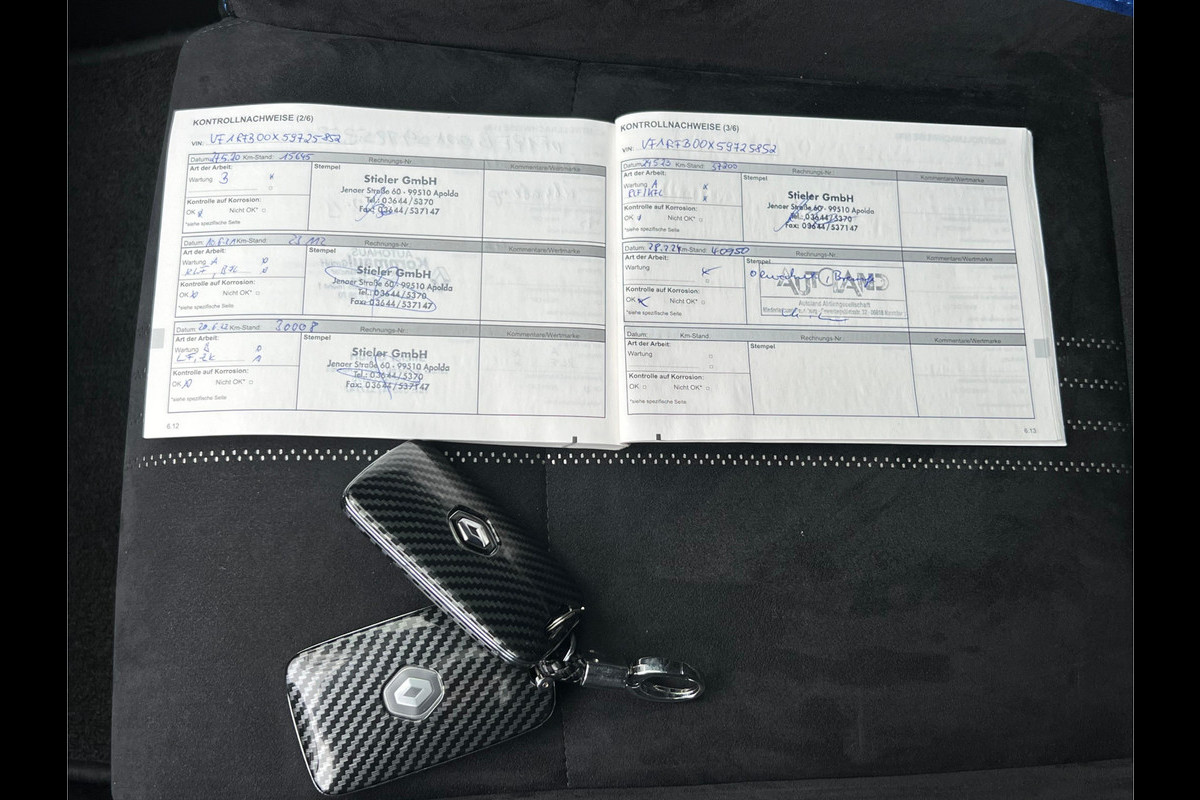 KONTROLLNACHWEISE (2/6)
VIN: VF1RFB00X59725852
Datum: 27.5.20 Km-Stand: 15645 Rechnungs-Nr.:
Art der Arbeit: Stempel Kommentare/Wertmarke
Wartung
Stieler GmbH
Jenaer Straße 60 - 99510 Apolda
Tel.: 03644/5370
Fax: 03644/537147
Kontrolle auf Korrosion:
OK Nicht OK*
*siehe spezifische Seite
Datum: Km-Stand: Rechnungs-Nr.:
Art der Arbeit: Stempel Kommentare/Wertmarke
Wartung A
Stieler GmbH
Jenaer Straße 60 - 99510 Apolda
Tel.: 03644/5370
Fax: 03644/537147
Kontrolle auf Korrosion:
OK Nicht OK*
*siehe spezifische Seite
Datum: 20.6.22 Km-Stand: 30008 Rechnungs-Nr.:
Art der Arbeit: Stempel Kommentare/Wertmarke
Wartung B
Stieler GmbH
Jenaer Straße 60 - 99510 Apolda
Tel.: 03644/5370
Fax: 03644/537147
Kontrolle auf Korrosion:
OK Nicht OK*
*siehe spezifische Seite
6.12
KONTROLLNACHWEISE (3/6)
VIN: VF1RFB00X59725852
Datum: 24.5.23 Km-Stand: 37200 Rechnungs-Nr.:
Art der Arbeit: Stempel Kommentare/Wertmarke
Wartung A
Stieler GmbH
Jenaer Straße 60 - 99510 Apolda
Tel.: 03644/5370
Fax: 03644/537147
Kontrolle auf Korrosion:
OK Nicht OK*
*siehe spezifische Seite
Datum: 28.7.24 Km-Stand: 40950 Rechnungs-Nr.:
Art der Arbeit: Stempel Kommentare/Wertmarke
Wartung
Autoland Aktiengesellschaft
Kontrolle auf Korrosion:
OK Nicht OK*
*siehe spezifische Seite
Datum: Km-Stand: Rechnungs-Nr.:
Art der Arbeit: Stempel Kommentare/Wertmarke
Wartung
Kontrolle auf Korrosion:
OK Nicht OK*
*siehe spezifische Seite
6.13